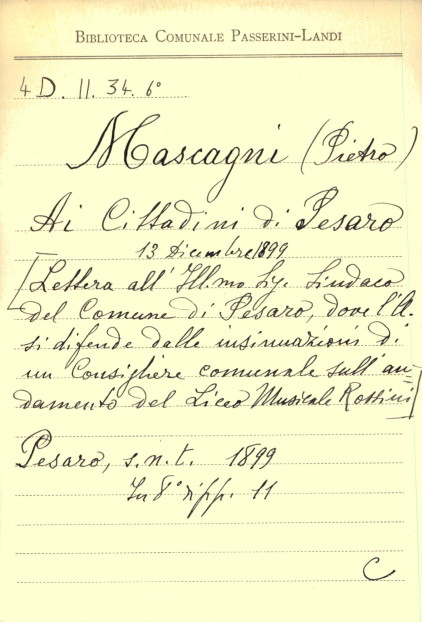 BIBLIOTECA COMUNALE PASSERINI-LANDI
4 D. II. 34. 6°
Mascagni (Pietro)
Ai Cittadini di Pesaro
13 Dicembre 1899
[Lettera all' Ill.mo Sig. Sindaco
del Comune di Pesaro, dove l'A.
si difende dalle insinuazioni di
un Consigliere comunale sull'an=
damento del Liceo Musicale Rossini]
Pesaro, s. n. t. 1899
In 8° di pp. 11
C